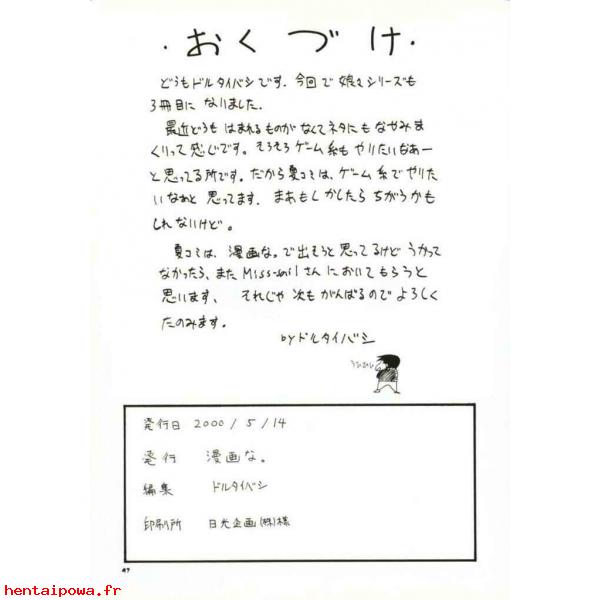 ・おくづけ・
どうもドルタイバシです。今回で娘々シリーズも
3冊目になりました。
最近どうもはまれるものがなくてネタにもなやみま
くりって感じです。そろそろゲーム系もやりたいなあー
と思ってる所です。だから夏コミは、ゲーム系でやりた
いなぁと思ってます。まあもしかしたらちがうかも
しれないけど。
夏コミは、漫画な。で出そうと思ってるけどうかって
なかったら、またMissさんにおいてもらうと
思います、それじゃ次もがんばるのでよろしく
たのみます。
byドルタイバシ
うひひひ
発行日 2000/5/14
発行 漫画な。
編集 ドルタイバシ
印刷所 日光企画(株)様
47
hentaipowa.fr